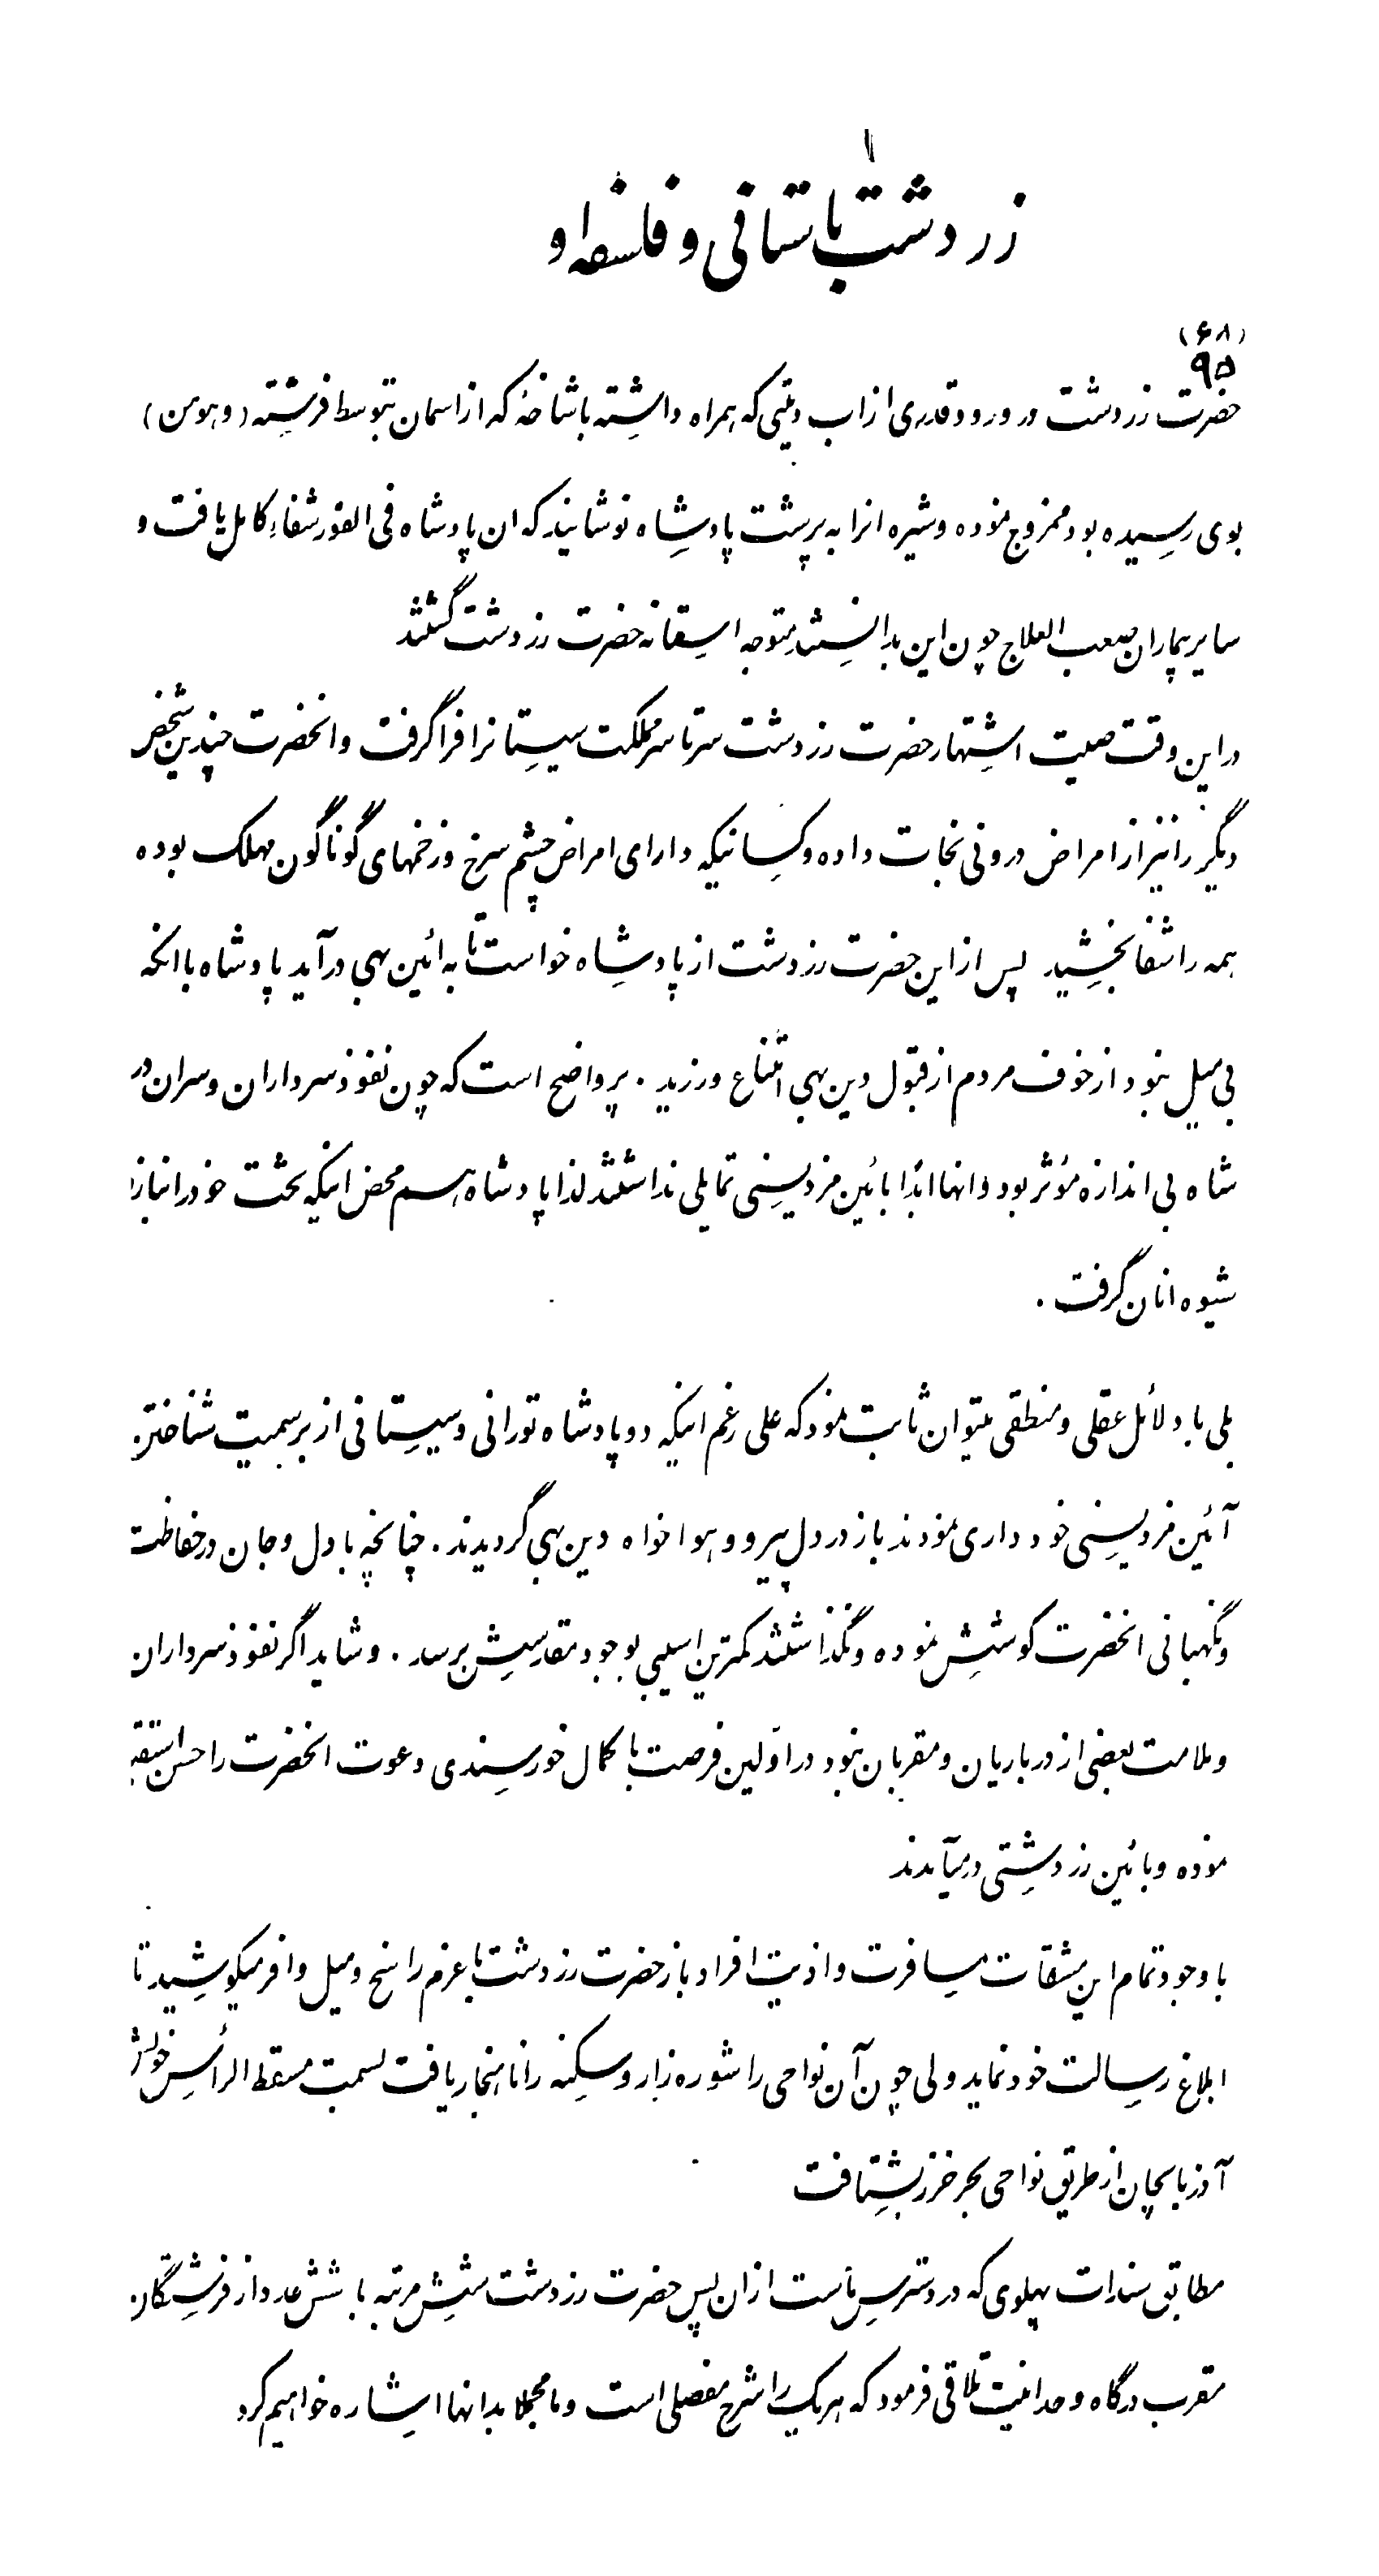 زردشت باستانی و فلسفه او
(۶۸)
۹۵
حضرت زردشت در ورود قدری از اب دیتی که همراه داشته با شاخهٔ که از اسمان بتوسط فرشته (وهومن)
بوی رسیده بود ممزوج نموده و شیره انرا به پرشت پادشاه نوشانید که ان پادشاه فی الفور شفاء کامل یافت و
سایر بیماران صعب العلاج چون این بدانستند متوجه استانه حضرت زردشت گشتند
در این وقت صیت اشتهار حضرت زردشت سرتاسر مملکت سیستانرا فرا گرفت و انحضرت چندین شخص
دیگر را نیز از امراض درونی نجات داده و کسانیکه دارای امراض چشم سرخ و زخمهای گوناگون مهلک بوده
همه را شفا بخشید پس از این حضرت زردشت از پادشاه خواست تا به ائین بهی درآید پادشاه با انکه
بی میل نبود از خوف مردم از قبول دین بهی امتناع ورزید . پر واضح است که چون نفوذ سرداران و سران در
شاه بی اندازه مؤثر بود و انها ابدًا بائین مزدیسنی تمایلی نداشتند لذا پادشاه هم محض اینکه تخت خود را نبازد
شیوه انان گرفت .
بلی با دلائل عقلی و منطقی میتوان ثابت نمود که علی رغم اینکه دو پادشاه تورانی و سیستانی از برسمیت شناختن
آئین مزدیسنی خود داری نمودند باز در دل پیرو و هوا خواه دین بهی گردیدند . چنانچه با دل و جان در حفاظت
و نگهبانی انحضرت کوشش نموده و نگذاشتند کمترین اسیبی بوجود مقدسش برسد . و شاید اگر نفوذ سرداران
و ملامت بعضی از درباریان و مقربان نبود در اوّلین فرصت با کمال خورسندی دعوت انحضرت را حسن استقبال
نموده و بائین زردشتی درمیآیدند
با وجود تمام این مشقّات مسافرت و اذیت افراد باز حضرت زردشت با عزم راسخ و میل وافر میکوشید تا
ابلاغ رسالت خود نماید ولی چون آن نواحی را شوره زار و سکنه را ناهنجار یافت بسمت مسقط الرأس خویش
آذربایجان از طریق نواحی بحر خزر بشتافت
مطابق سندات پهلوی که در دسترس ماست از ان پس حضرت زردشت شش مرتبه با شش عدد از فرشتگان
مقرب درگاه وحدانیت تلاقی فرمود که هریک را شرح مفصلی است و ما مجملا بدانها اشاره خواهیم کرد